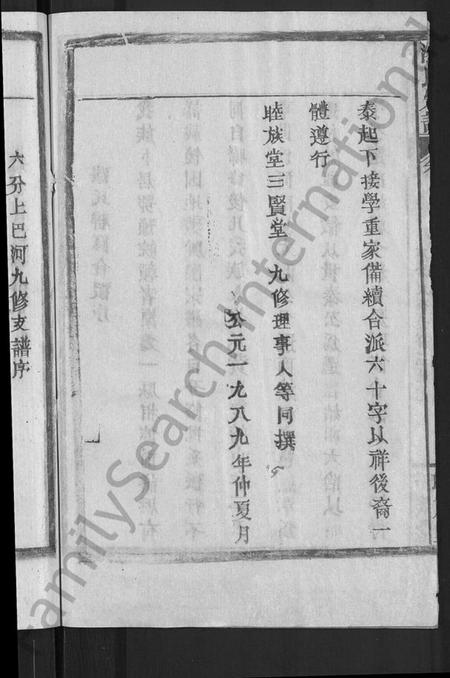 泰起下接學重家備續合派六十字以祥後裔一
體遵行
睦族堂三賢堂 九修理事人等同撰
公元一九八九年仲夏月
六分上巴河九修支譜序
FamilySearch International